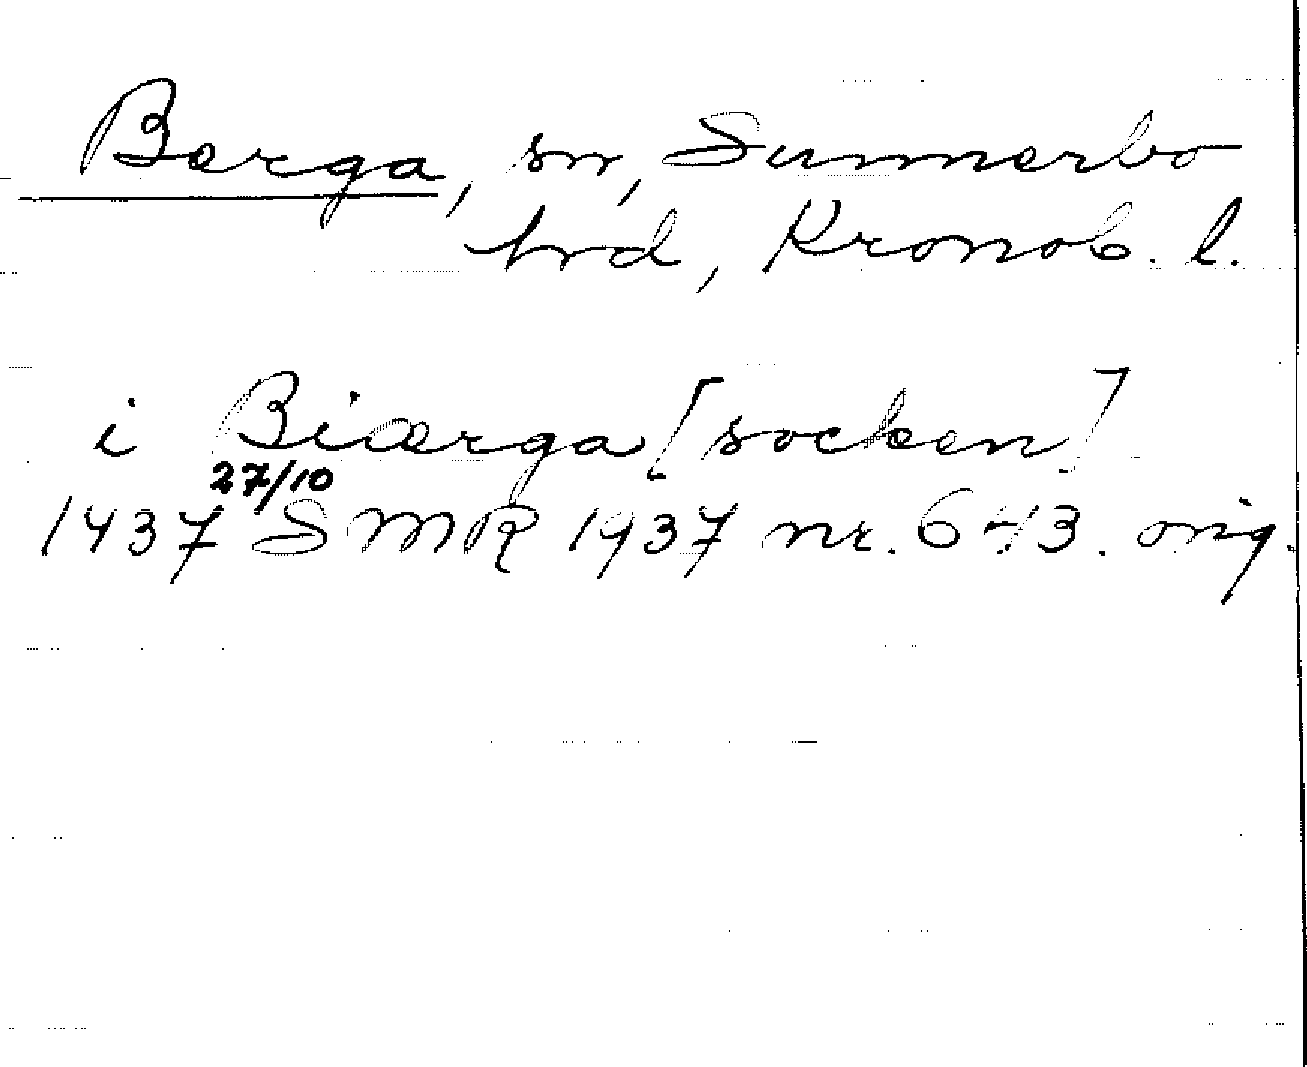 Berga, sn, Sunnerbo
hrd, Kronob. l.
i Biærga [socken]
27/10
1437 SMR 1937 nr. 643. orig.